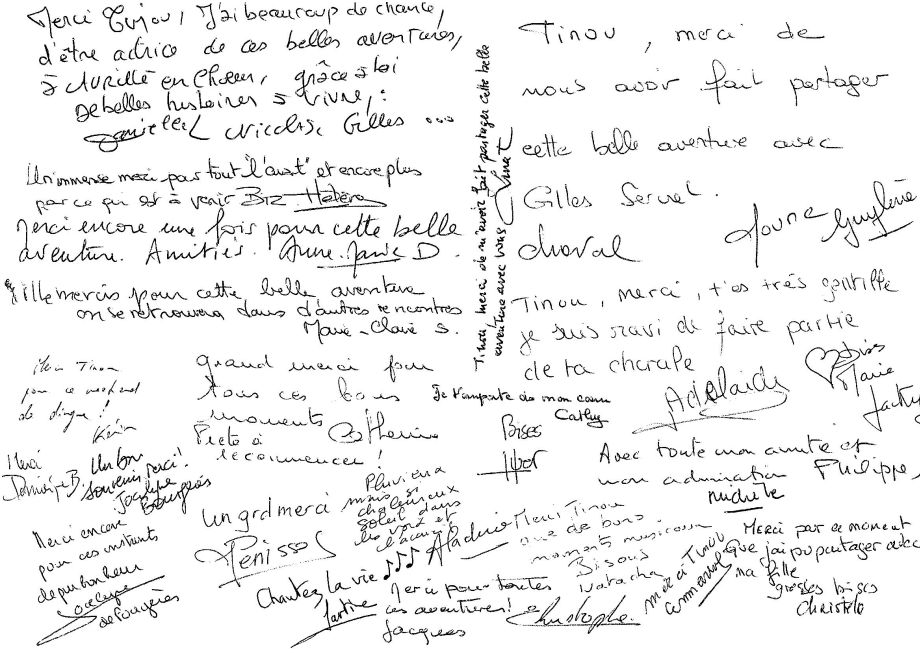 Merci Tinou, J'ai beaucoup de chance,
d'être actrice de ces belles aventures,
à Avrillé en Chœur, grâce à toi
De belles histoires à vivre,:
Nicolas Gilles ...
Un immense merci pour tout "l'avant" et encore plus
par ce qui est à venir Biz Hélène
Merci encore une fois pour cette belle
aventure. Amitiés. Anne-Marie D.
Mille mercis pour cette belle aventure
on se retrouvera dans d'autres rencontres
Marie-Claire S.
Tinou, merci de m'avoir fait partager cette belle
aventure avec vous
Tinou, merci de
nous avoir fait partager
cette belle aventure avec
Gilles Servat.
Guylène
Tinou, merci, t'es très gentille
je suis ravi de faire partie
de ta chorale
Adelaide
Bises
Marie
Merci Tinou
pour ce weekend
de dingue!
Kévin
grand merci pour
tous ces bons
moments
Prête à
recommencer!
Catherine
Je t'emporte dans mon cœur
Cathy
Bises
Avec toute mon amitié et
mon admiration Philippe,
Michèle
Merci
Un bon
souvenir merci!
Jocelyne
Bourgeois
Merci encore
pour ces instants
de pur bonheur
Jocelyne
de Fougères
un grd merci
Penisson
Pluie ou
mais si
chaleureux
soleil dans
les voix et
l'accueil
Chantez la vie ♪♪♪
Merci Tinou
que de bons
moments musicaux
Bisous
Natacha
Merci pour toutes
ces aventures!
Jacques
Christophe.
merci Tinou
Merci par ce moment
que j'ai pu partager avec
ma fille
grosses bises
Christèle